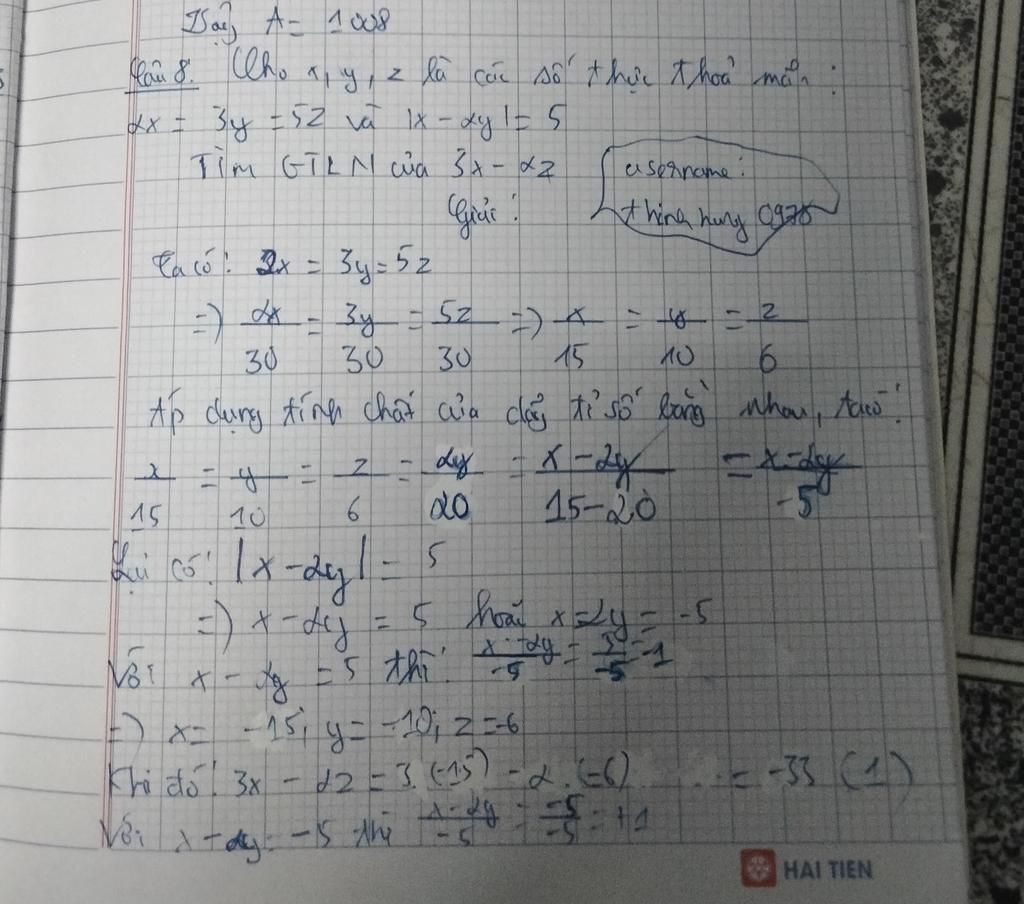 Vậy A = 1008
Câu 8. Cho x, y, z là các số thực thoả mãn:
2x = 3y = 5z và |x - 2y| = 5
Tìm GTLN của 3x - 2z
username:
thinhhung0976
Giải:
Ta có: 2x = 3y = 5z
=> 2x/30 = 3y/30 = 5z/30 => x/15 = y/10 = z/6
Áp dụng tính chất của dãy tỉ số bằng nhau, ta có:
x/15 = y/10 = z/6 = 2y/20 = x - 2y/15 - 20 = x - 2y/-5
Lại có: |x - 2y| = 5
=> x - 2y = 5 hoặc x - 2y = -5
Với x - 2y = 5 thì: x - 2y/-5 = 5/-5 = -1
=> x = -15; y = -10; z = -6
Khi đó: 3x - 2z = 3.(-15) - 2.(-6) = -33 (1)
Với x - 2y = -5 thì x - 2y/-5 = -5/-5 = +1
HAI TIEN